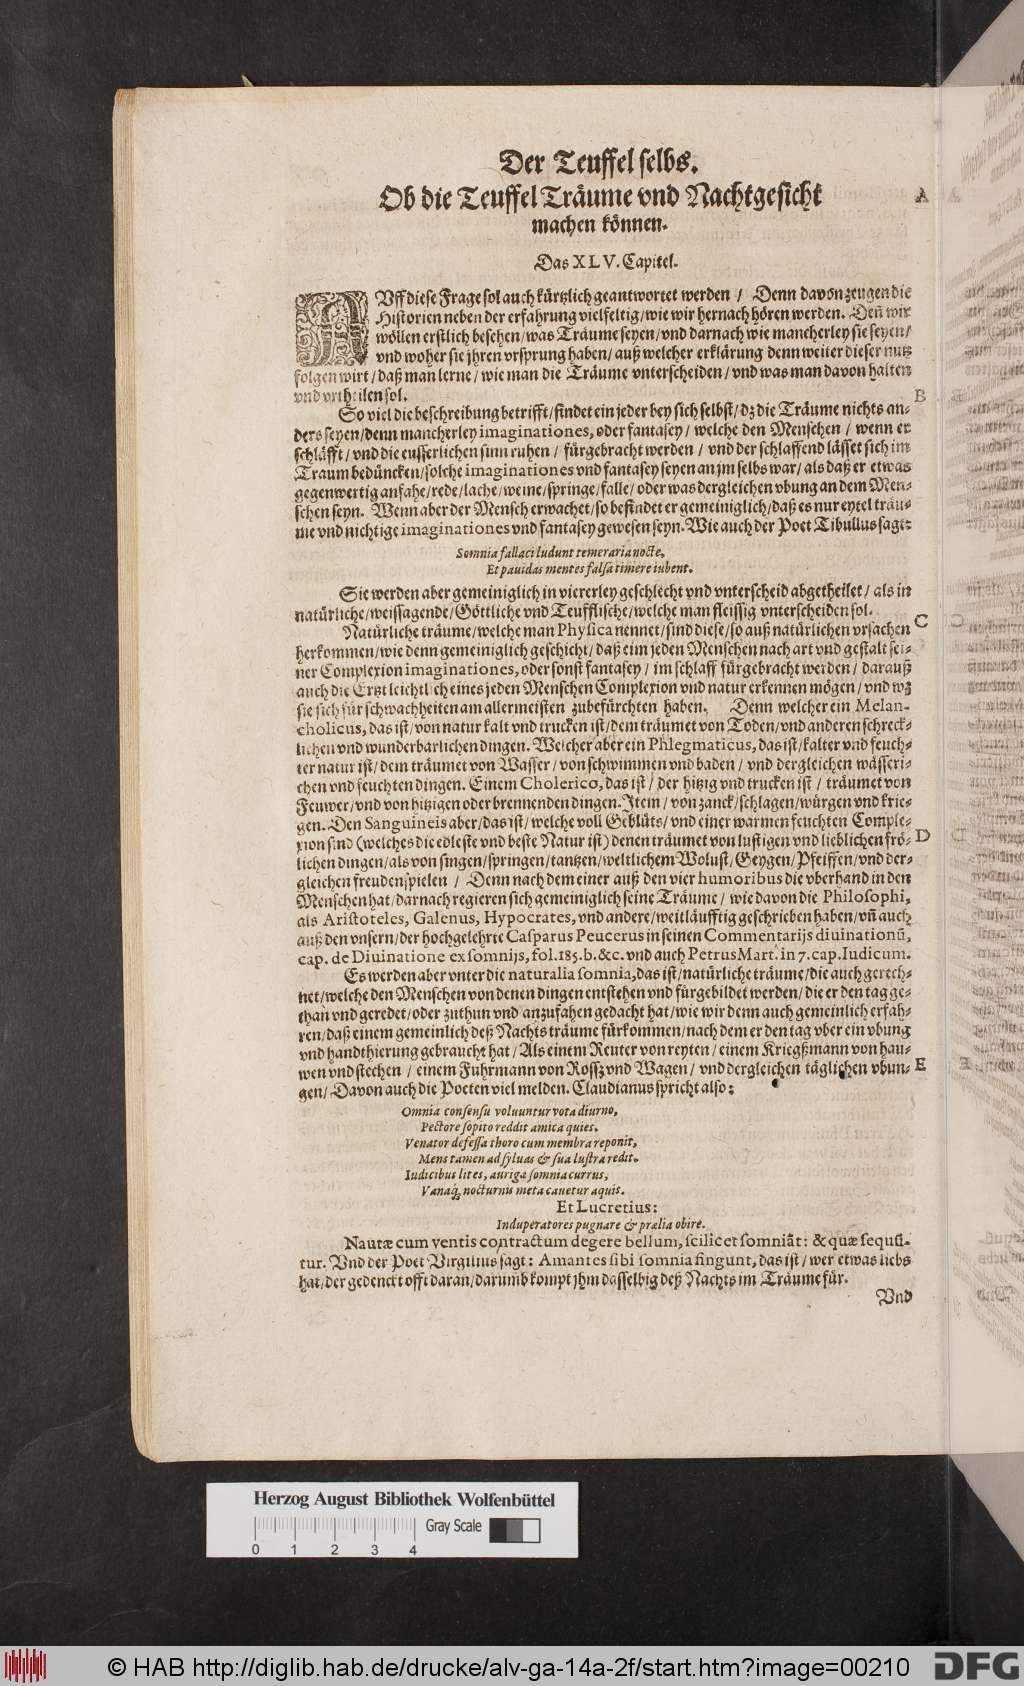 Der Teuffel selbs.
Ob die Teuffel Träume vnd Nachtgesicht
machen können.
A
Das XLV. Capitel.
AVff diese Frage sol auch kürtzlich geantwortet werden / Denn davon zeugen die
Historien neben der erfahrung vielfeltig / wie wir hernach hören werden. Deñ wir
wöllen erstlich besehen / was Träume seyen / vnd darnach wie mancherley sie seyen /
vnd woher sie jhren vrsprung haben / auß welcher erklärung denn weiter dieser nutz
folgen wirt / daß man lerne / wie man die Träume vnterscheiden / vnd was man davon halten
vnd vrtheilen sol.
B
So viel die beschreibung betrifft / findet ein jeder bey sich selbst / dz die Träume nichts an-
ders seyen / denn mancherley imaginationes, oder fantasey / welche den Menschen / wenn er
schläfft / vnd die eusserlichen sinn ruhen / fürgebracht werden / vnd der schlaffend lässet sich im
Traum bedüncken / solche imaginationes vnd fantasey seyen an jm selbs war / als daß er etwas
gegenwertig anfahe / rede / lache / weine / springe / falle / oder was dergleichen vbung an dem Men-
schen seyn. Wenn aber der Mensch erwachet / so befindet er gemeiniglich / daß es nur eytel träu-
me vnd nichtige imaginationes vnd fantasey gewesen seyn. Wie auch der Poet Tibullus sagt:
Somnia fallaci ludunt temeraria nocte,
Et pauidas mentes falsa timere iubent.
Sie werden aber gemeiniglich in viererley geschlecht vnd vnterscheid abgetheilet / als in
natürliche / weissagende / Göttliche vnd Teufflische / welche man fleissig vnterscheiden sol.
C
Natürliche träume / welche man Physica nennet / sind diese / so auß natürlichen vrsachen
herkommen / wie denn gemeiniglich geschicht / daß eim jeden Menschen nach art vnd gestalt sei-
ner Complexion imaginationes, oder sonst fantasey / im schlaff fürgebracht werden / darauß
auch die Ertzt leichtlich eines jeden Menschen Complexion vnd natur erkennen mögen / vnd wz
sie sich für schwachheiten am allermeisten zubefürchten haben. Denn welcher ein Melan-
cholicus, das ist / von natur kalt vnd trucken ist / dem träumet von Toden / vnd anderen schreck-
lichen vnd wunderbarlichen dingen. Welcher aber ein Phlegmaticus, das ist / kalter vnd feuch-
ter natur ist / dem träumet von Wasser / von schwimmen vnd baden / vnd dergleichen wässeri-
chen vnd feuchten dingen. Einem Cholerico, das ist / der hitzig vnd trucken ist / träumet von
Feuwer / vnd von hitzigen oder brennenden dingen. Item / von zanck / schlagen / würgen vnd krie-
gen. Den Sanguineis aber / das ist / welche voll Geblüts / vnd einer warmen feuchten Comple-
D
xion sind (welches die edleste vnd beste Natur ist) denen träumet von lustigen vnd lieblichen frö-
lichen dingen / als von singen / springen / tantzen / weltlichem Wolust / Geygen / Pfeiffen / vnd der-
gleichen freudenspielen / Denn nach dem einer auß den vier humoribus die vberhand in den
Menschen hat / darnach regieren sich gemeiniglich seine Träume / wie davon die Philosophi,
als Aristoteles, Galenus, Hypocrates, vnd andere / weitläufftig geschrieben haben / vñ auch
auß den vnsern / der hochgelehrte Casparus Peucerus in seinen Commentarijs diuinationũ,
cap. de Diuinatione ex somnijs, fol. 185. b. &c. vnd auch Petrus Mart. in 7. cap. Iudicum.
Es werden aber vnter die naturalia somnia, das ist / natürliche träume / die auch gerech-
net / welche den Menschen von denen dingen entstehen vnd fürgebildet werden / die er den tag ge-
than vnd geredet / oder zuthun vnd anzufahen gedacht hat / wie wir denn auch gemeinlich erfah-
ren / daß einem gemeinlich deß Nachts träume fürkommen / nach dem er den tag vber ein vbung
vnd handthierung gebraucht hat / Als einem Reuter von reyten / einem Kriegßmann von hau-
wen vnd stechen / einem Fuhrmann von Rossz vnd Wagen / vnd dergleichen täglichen vbun-
E
gen / Davon auch die Poeten viel melden. Claudianus spricht also:
Omnia consensu voluuntur vota diurno,
Pectore sopito reddit amica quies.
Venator defessa thoro cum membra reponit,
Mens tamen ad syluas & sua lustra redit.
Iudicibus lites, auriga somnia currus,
Vanaq́ue nocturnu meta cauetur aquis.
Et Lucretius:
Induperatores pugnare & prælia obire.
Nautæ cum ventis contractum degere bellum, scilicet somniãt: & quæ sequũ-
tur. Vnd der Poet Virgilius sagt: Amantes sibi somnia fingunt, das ist / wer etwas liebs
hat / der gedenckt offt daran / darumb kompt jhm dasselbig deß Nachts im Träume für.
Vnd
Herzog August Bibliothek Wolfenbüttel
Gray Scale
0 1 2 3 4
© HAB http://diglib.hab.de/drucke/alv-ga-14a-2f/start.htm?image=00210
DFG